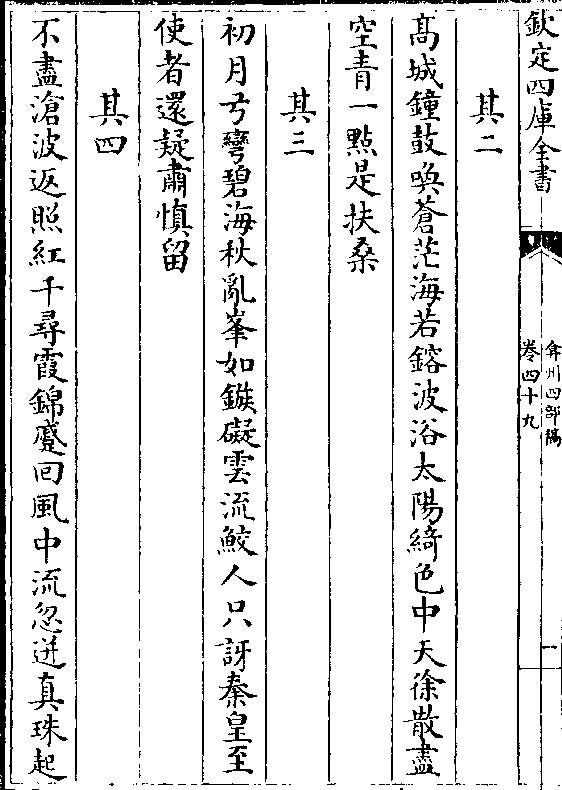 欽定四庫全書
弇州四部稿
卷四十九
一
其二
髙城鐘鼓喚蒼茫海若鎔波浴太陽綺色中天徐散盡
空青一點是扶桑
其三
初月弓彎碧海秋亂峯如鏃礙雲流鮫人只訝秦皇至
使者還疑肅慎留
其四
不盡滄波返照紅千尋霞錦蹙回風中流忽迸真珠起